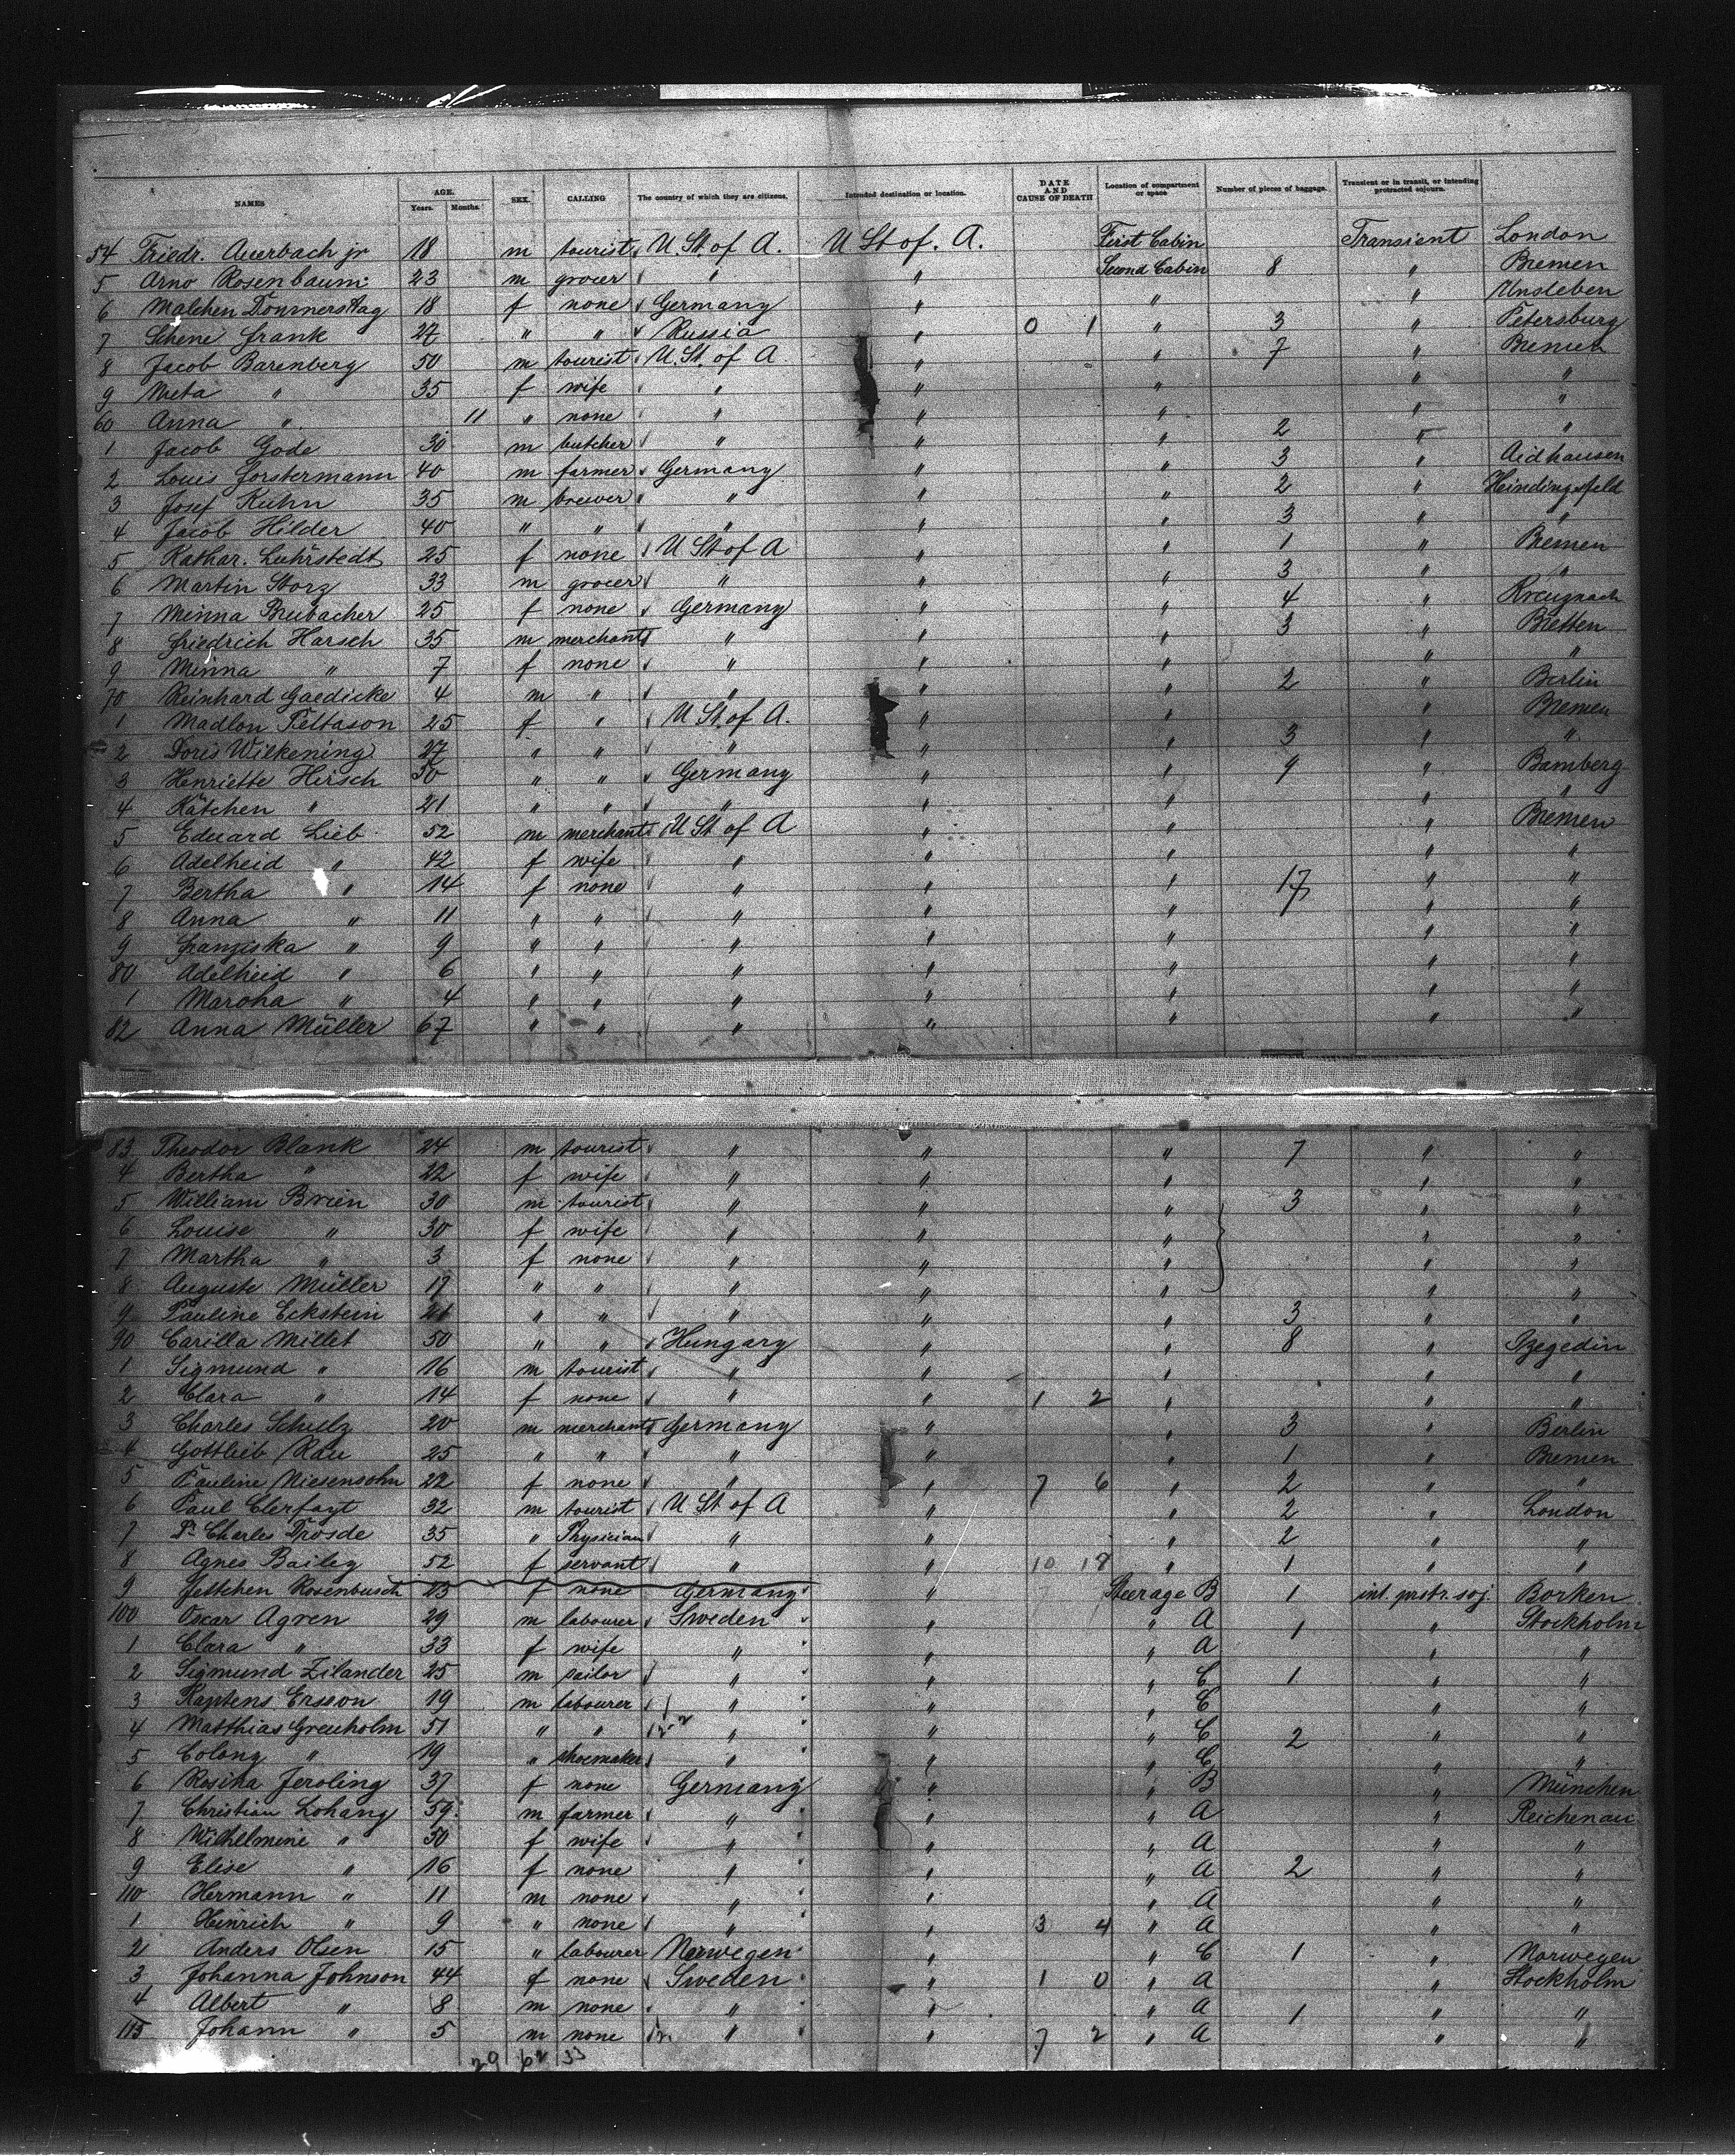 NAMES AGE. Years. Months. SEX. CALLING The country of which they are citizens. Intended destination or location. DATE AND CAUSE OF DEATH Location of compartment or space Number of pieces of baggage. Transient or in transit, or intending protracted sojourn.
54 Friedr. Auerbach jr 18 m tourist U. St. of A. U St of. A. First Cabin Transient London
5 Arno Rosenbaum 23 m grocer " " Second Cabin 8 " Bremen
6 Malchen Donnerstag 18 f none Germany " " " Unsleben
7 Schene Frank 27 " " Russia " 0 1 " 3 " Petersburg
8 Jacob Barenberg 50 m tourist U. St. of A. " " 7 " Bremen
9 Meta " 35 f wife " " " " "
60 Anna " 11 " none " " " " "
1 Jacob Gode 30 m butcher " " " 2 " "
2 Louis Forstermann 40 m farmer Germany " " 3 " Aidhausen
3 Josef Kuhn 35 m brewer " " " 2 " Heindingsfeld
4 Jacob Hilder 40 " " " " " 3 " "
5 Kathar. Luhrstedt 25 f none U St of A " " 1 " Bremen
6 Martin Storz 33 m grocer " " " 3 " "
7 Minna 25 f none Germany " " 4 " Kreuznach
8 Friedrich Harsch 35 m merchant " " " 3 " Bretten
9 Minna " 7 f none " " " " "
70 Reinhard Gaedicke 4 m " " " " 2 " Berlin
1 Madlon 25 f " U St. of A. " " " Bremen
2 Doris Wilkening 27 " " " " " 3 " "
3 Henriette Hirsch 50 " " Germany " " 9 " Bamberg
4 Kätchen " 21 " " " " " " "
5 Eduard Lieb 52 m merchant U St of A " " " Bremen
6 Adelheid " 42 f wife " " " " "
7 Bertha " 14 f none " " " 17 " "
8 Anna " 11 " " " " " " "
9 Franziska " 9 " " " " " " "
80 Adelheid " 6 " " " " " " "
1 " 4 " " " " " " "
82 Anna Müller 67 " " " " " " "
83 Theodor Blank 24 m tourist " " " 7 " "
4 Bertha " 22 f wife " " " " "
5 William Brien 30 m tourist " " " 3 " "
6 Louise " 30 f wife " " " " "
7 Martha " 3 f none " " " " "
8 Auguste Müller 17 " " " " " " "
9 Pauline Eckstein 21 " " " " " 3 " "
90 Carilla Millet 50 " " Hungary " " 8 " Szegedin
1 Sigmund " 16 m tourist " " " " "
2 Clara " 14 f none " " 1 2 " " "
3 Charles Schulz 20 m merchant Germany " " 3 " Berlin
4 Gottlieb Rau 25 " " " " " 1 " Bremen
5 Pauline Niesensohn 22 f none " " 7 6 " 2 " "
6 Paul Clerfayt 32 m tourist U St of A " " 2 " London
7 Dr Charles Drosde 35 " Physician " " " 2 " "
8 Agnes Bailey 52 f servant " " 10 18 " 1 " "
9 Jettchen Rosenbusch 23 f none Germany " Steerage B 1 int. protr. soj. Borken
100 Oscar Agren 29 m labourer Sweden " " A 1 " Stockholm
1 Clara " 33 f wife " " " A "
2 Sigmund Zilander 25 m sailor " " " C 1 " "
3 Ersson 19 m labourer " " " C " "
4 Matthias Greuholm 51 " " " " " C 2 " "
5 Colony " 19 " shoemaker " " " C " "
6 Rosina Jeroling 37 f none Germany " " B " München
7 Christian Lohang 59 m farmer " " " A " Reichenau
8 Wilhelmine " 50 f wife " " " A " "
9 Elise " 16 f none " " " A 2 " "
110 Hermann " 11 m none " " " A " "
1 Heinrich " 9 " none " " 3 4 " A " "
2 Anders Olsen 15 " labourer Norwegen " " C 1 " Norwegen
3 Johanna Johnson 44 f none Sweden " 1 0 " A " Stockholm
4 Albert " 8 m none " " " A 1 " "
115 Johann " 5 m none " " 7 2 " A " "
29 62 33